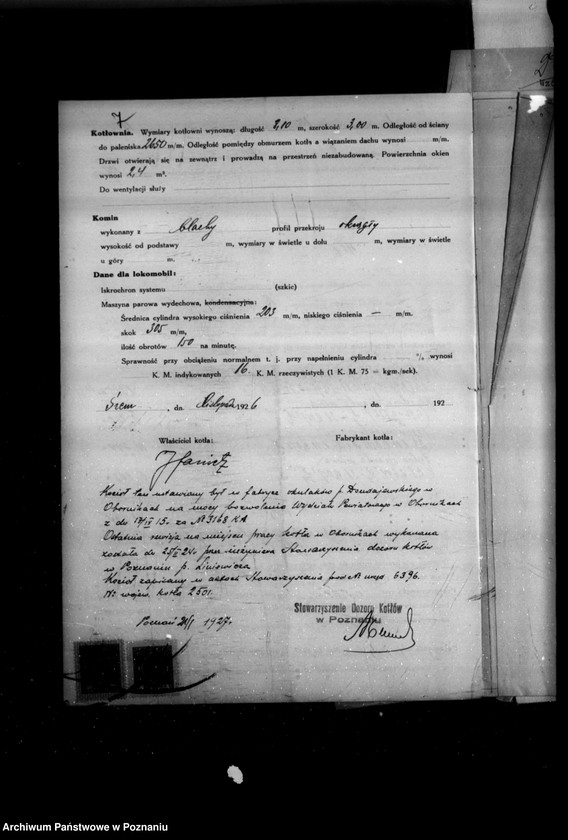 7
Kotłownia. Wymiary kotłowni wynoszą: długość 2,10 m, szerokość 3,00 m. Odległość od ściany
do paleniska 2650 m/m. Odległość pomiędzy obmurzem kotła a wiązaniem dachu wynosi m/m.
Drzwi otwierają się na zewnętrz i prowadzą na przestrzeń niezabudowaną. Powierzchnia okien
wynosi 2,4 m².
Do wentylacji służy
Komin
wykonany z blachy profil przekroju okrągły
wysokość od podstawy m, wymiary w świetle u dołu m, wymiary w świetle
u góry m.
Dane dla lokomobil:
Iskrochron systemu (szkic)
Maszyna parowa wydechowa, kondensacyjna:
Średnica cylindra wysokiego ciśnienia 203 m/m, niskiego ciśnienia — m/m.
skok 305 m/m,
ilość obrotów 150 na minutę.
Sprawność przy obciążeniu normalnem t. j. przy napełnieniu cylindra % wynosi
K. M. indykowanych 16 K. M. rzeczywistych (1 K. M. 75 = kgm./sek).
Śrem, dn. Listopada 1926 , dn. 192
Właściciel kotła: Fabrykant kotła:
Kocioł ten ustawiony był w fabryce okułaków p.
Obornikach na mocy zezwolenia Wydziału Powiatowego w Obornikach
z dn IV 15. za № 3168 KA
Ostatnia rewizja na miejscu pracy kotła w Obornikach wykonana
została dn. 24 r. przez inżyniera Stowarzyszenia dozoru kotłów
w Poznaniu p.
Kocioł zapisany w aktach Stowarzyszenia pod № 6396.
№ wojew. kotła 2501.
Poznań 1927.
Stowarzyszenie Dozoru Kotłów
w Poznaniu
Archiwum Państwowe w Poznaniu